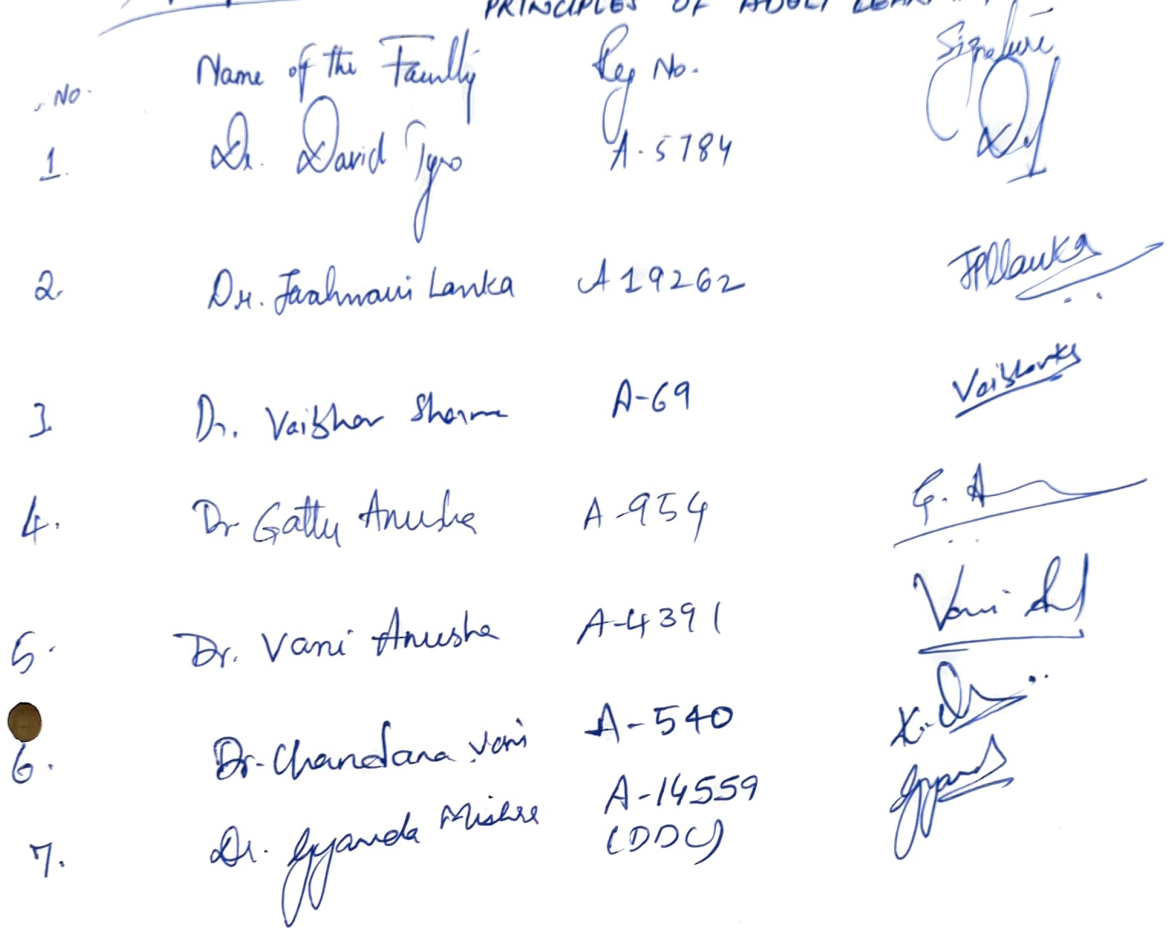 PRINCIPLES OF ADULT
No. Name of the Faculty Reg No. Signature
1. Dr. David Tyro A-5784
2. Dr. Jaahnavi Lanka A19262 JPLlanka
3. Dr. Vaibhav Sharma A-69
4. Dr Gattu Anusha A-954 G. A
5. Dr. Vani Anusha A-4391 Vani
6. Dr. Chandana Vani A-540
7. Dr. Gyanda Mishra A-14559
(DDC)